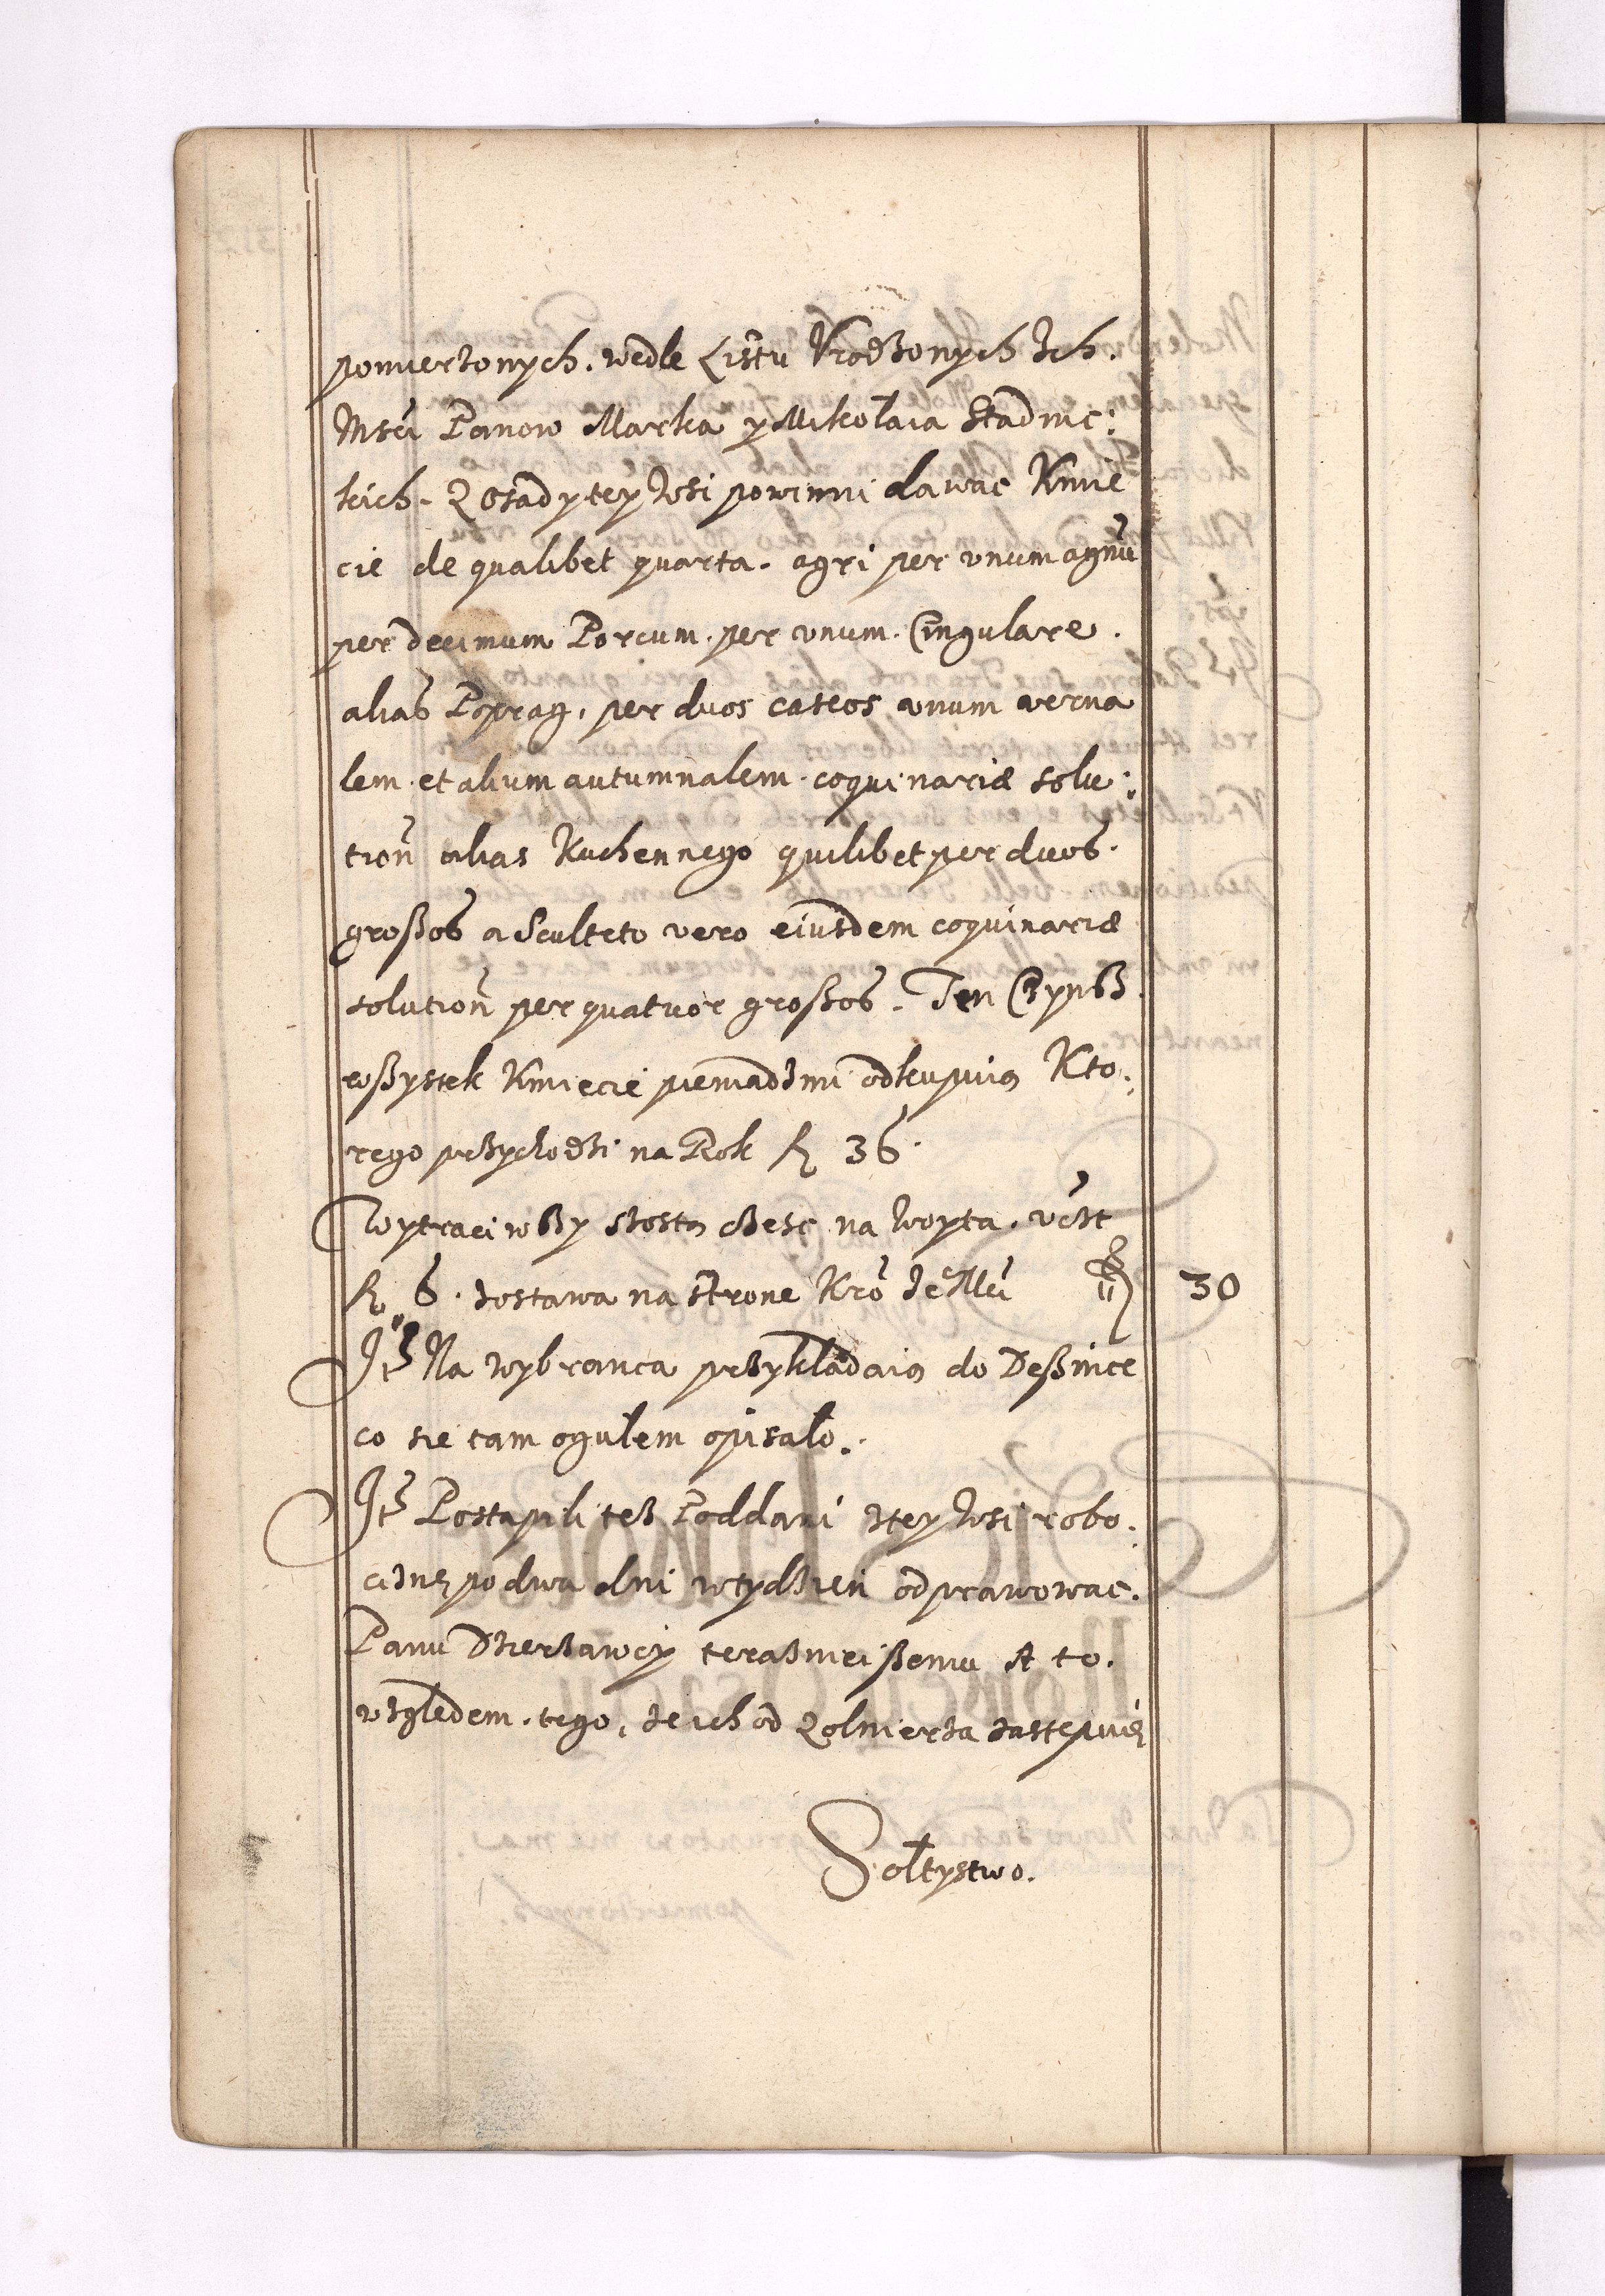 pomierzonych. wedle Listu Vrodzonych Ich.
Msci Panow Marka y Mikołaia Stadnic:
kich. Z osady tey Wsi powinni dawac Kmie
cie de qualibet quarta. agri per vnum agnũ
per decimum Porcum. per vnum. Cingulare.
alias Poprag, per duos caseos vnum verna
lem. et alium autumnalem. coquinariæ solu:
tion̄ alias Kuchennego quilibet per duos.
großos a Sculteto vero eiusdem coquinariæ
solution̄ per quatuor großos. Ten Czynß
wßystek Kmiecie pieniadzmi odkupuią Kto:
rego przychodzi na Rok fl 36.
Wytraciwßy szostą czesc na Woyta. vczt
fl 6. zostawa na strone Kro Je° Mci 30
Jt Na wybranca przykładaią do Deßnice
co sie tam ogulem opisało.
Jt Postąpili tez Poddani ztey Wsi robo:
cizne po dwa dni w tydzien odprawowac.
Panu Dzerzawcy teraznieißemu A to.
wzgledem. tego, ze ich od Zołnierza zastępuie
Sołtystwo.